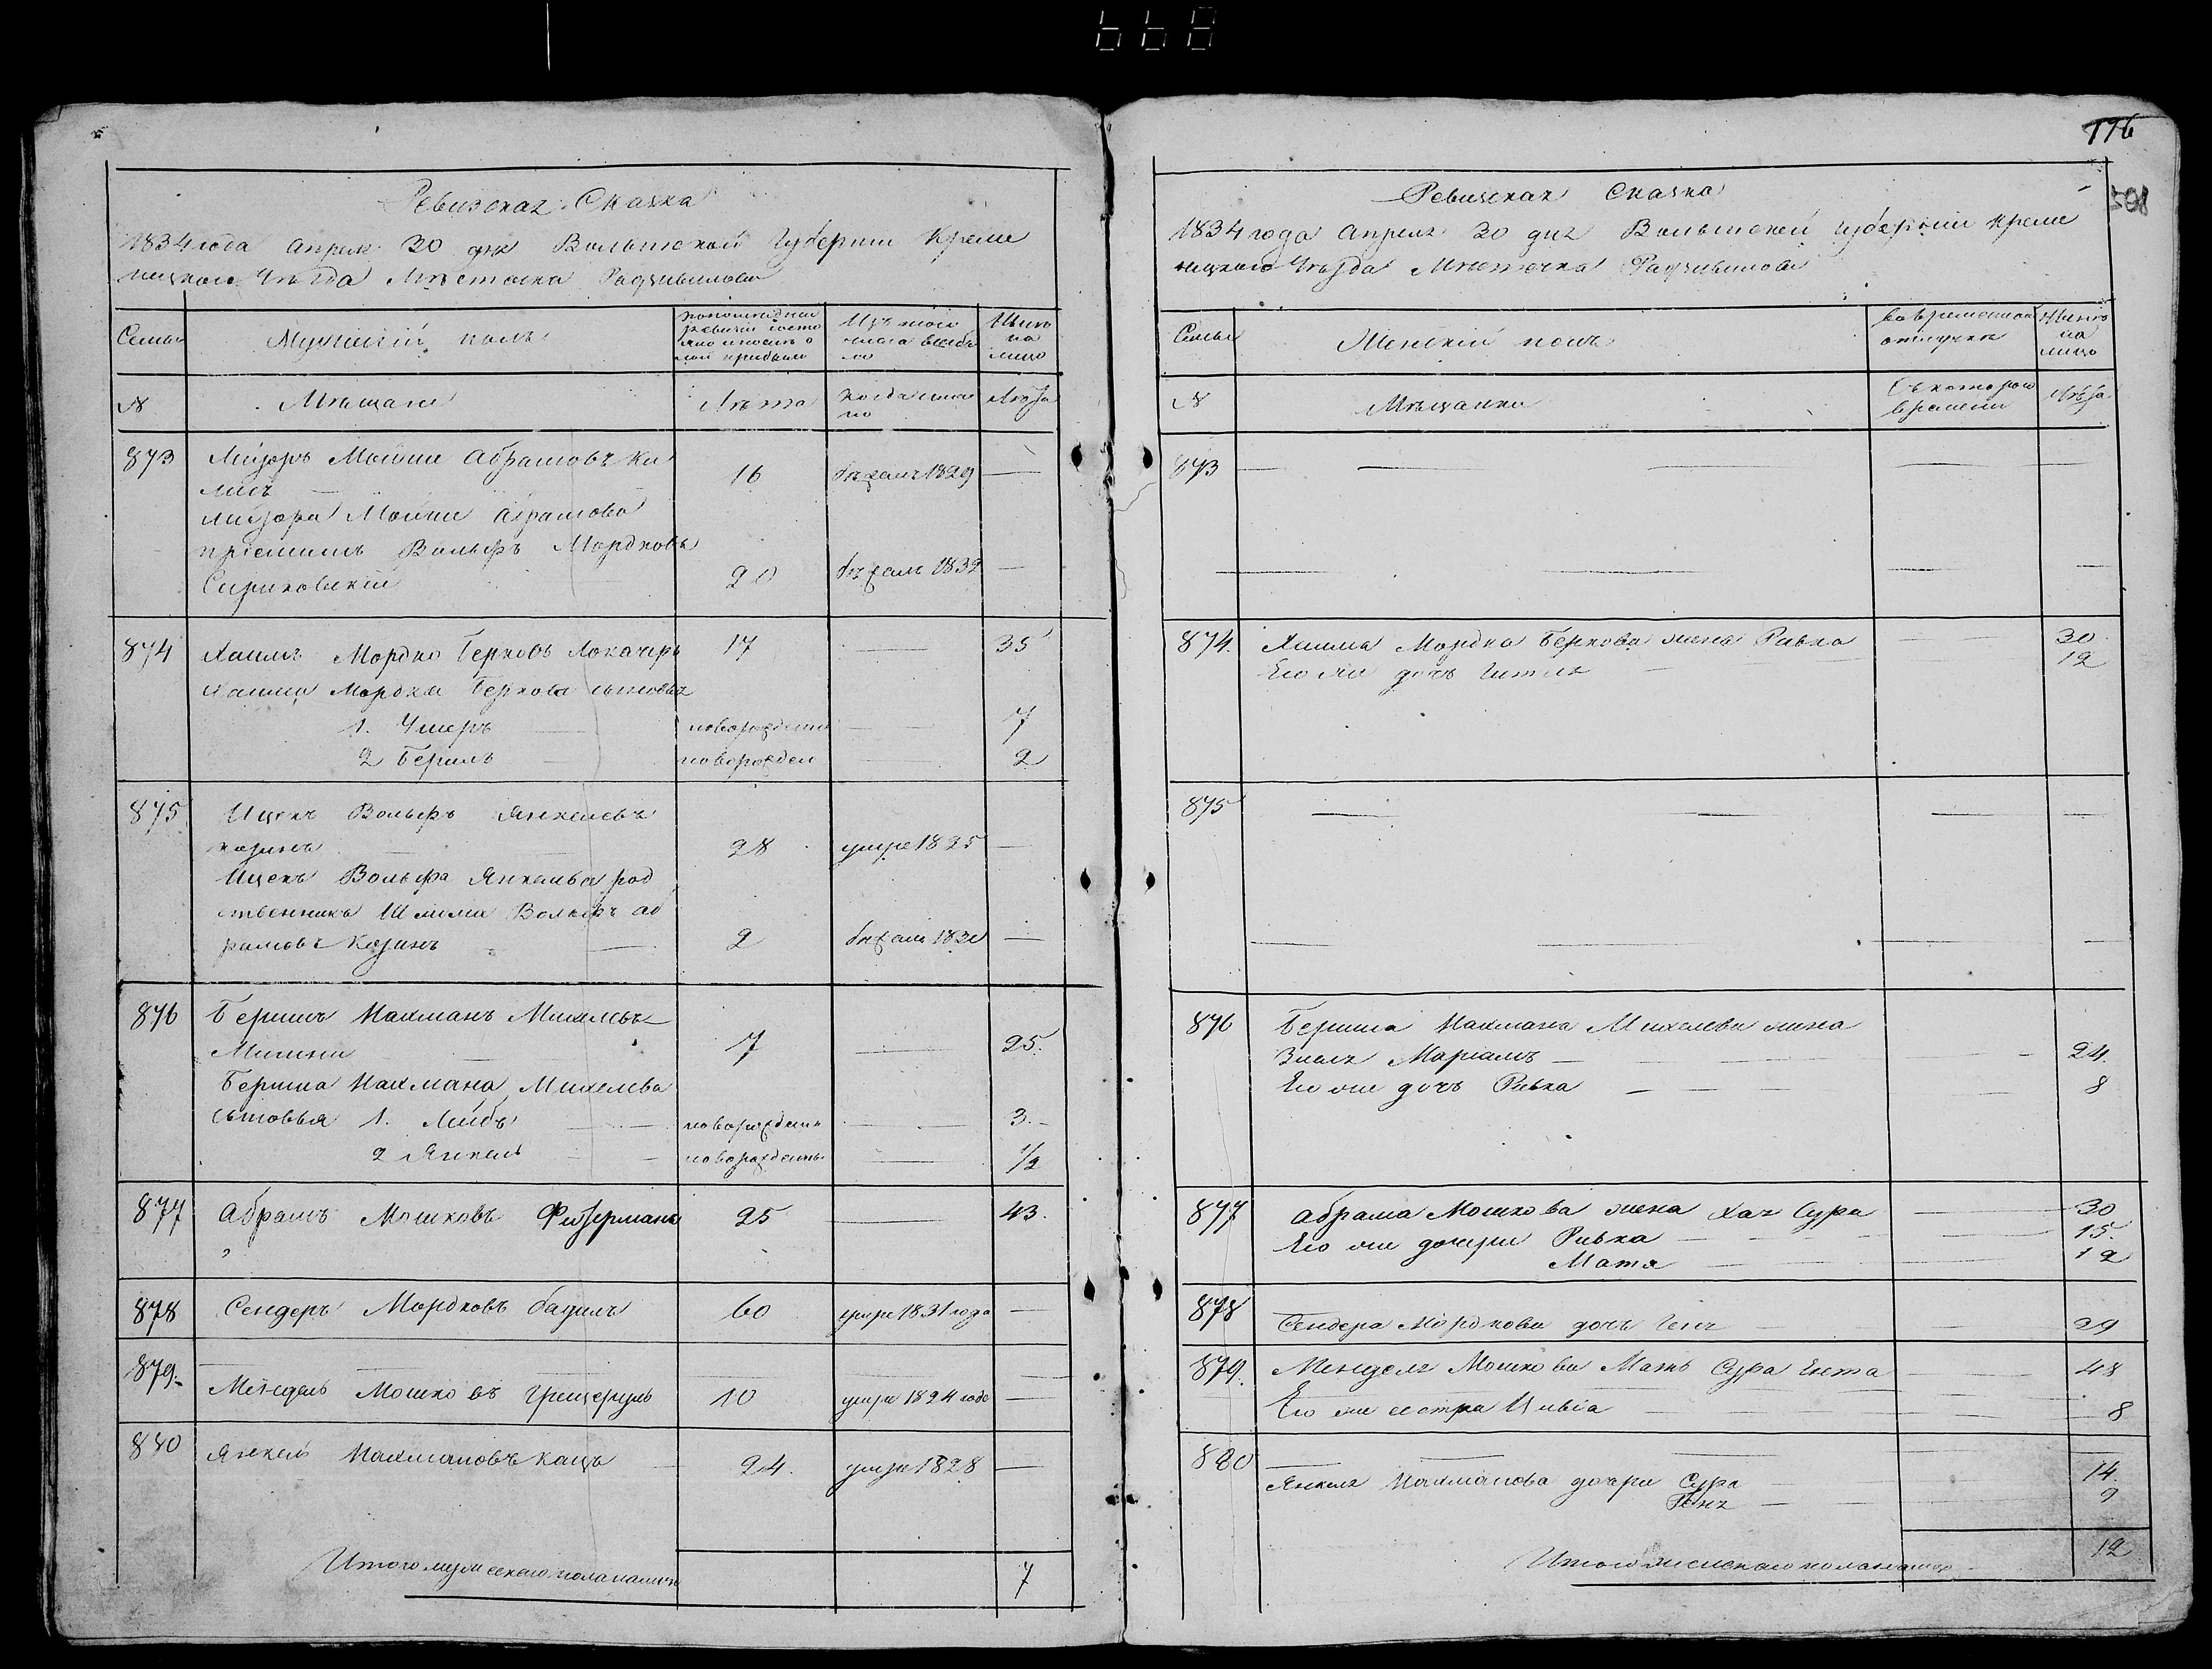 668
Ревизская Сказка
1834 года апреля 30 дня Волынской Губернии Креме
нецкого Уѣзда Мѣстечка Радзивилова
Семьи
Мужескій полъ
Изъ того
числа выбы
ло
Нынѣ
на
лицо
№
Мѣщане
Лѣта
когда имен
но
Лѣта
873
Лейзоръ Мойше Абрамовъ Ки
16
бѣжалъ 1829
—
Лейзора Мойши Абрамова
пріемышъ Вольфъ Мордковъ
20
бѣжалъ 1832
—
874
Хаимъ Мордко Берковъ Локачеръ
17
—
35
Хаима Мордка Беркова сыновья
1. Умеръ
новорожденн
—
7
2 Берилъ
новорожден
—
2
875
Ицекъ Вольфъ Янкелевъ
козинъ
28
умре 1825
—
Ицека Вольфа Янкелева род
ственникъ Шлима Вольфъ аб
рамовъ Козинъ
2
бѣжалъ
—
876
Беришъ Нахманъ Михелевъ
7
—
25.
Бериша Нахмана Михелева
сыновья 1. Лейбъ
новорожденн
—
3.
2 Янкель
новорожденны
—
1/2
877
Абрамъ Мошковъ Фитерманъ
25
—
43.
878
Сендеръ Мордковъ
60
умре 1831 года
—
879.
Мендель Мошковъ
10
умре 1824 года
—
880
Янкель Нахмановъ Кацъ
24.
умре 1828
—
Итого мужескаго пола налицо
7
196
Ревизская Сказка
1834 года Апреля 30 дня Волынской Губерніи Креме
нецкаго Уѣзда Мѣстечка Радзивилова
Семьи
Женскій полъ
Во временной
отлучкѣ
Нынѣ
на
лицо
№
Мѣщанки
Съ котораго
времени
Лѣта
873
874.
Хаима Мордка Беркова жена Ривка
30
Его же дочь Гитля
12
875
876
Бериша Нахмана Михелева жена
Маріамъ
24.
Его же дочь Ривка
8
877
Абрама Мошкова жена Хая Сура
30
Его же дочери Ривка
15.
Матя
12
878
Сендера Мордкова дочь Геня
29
879.
Менделя Мошкова Мать Сура Ента
48
Его же сестра Цивіа
8
880
Янкеля Нахманова дочери Сура
14.
Геня
9
Итого женскаго пола налицо
12